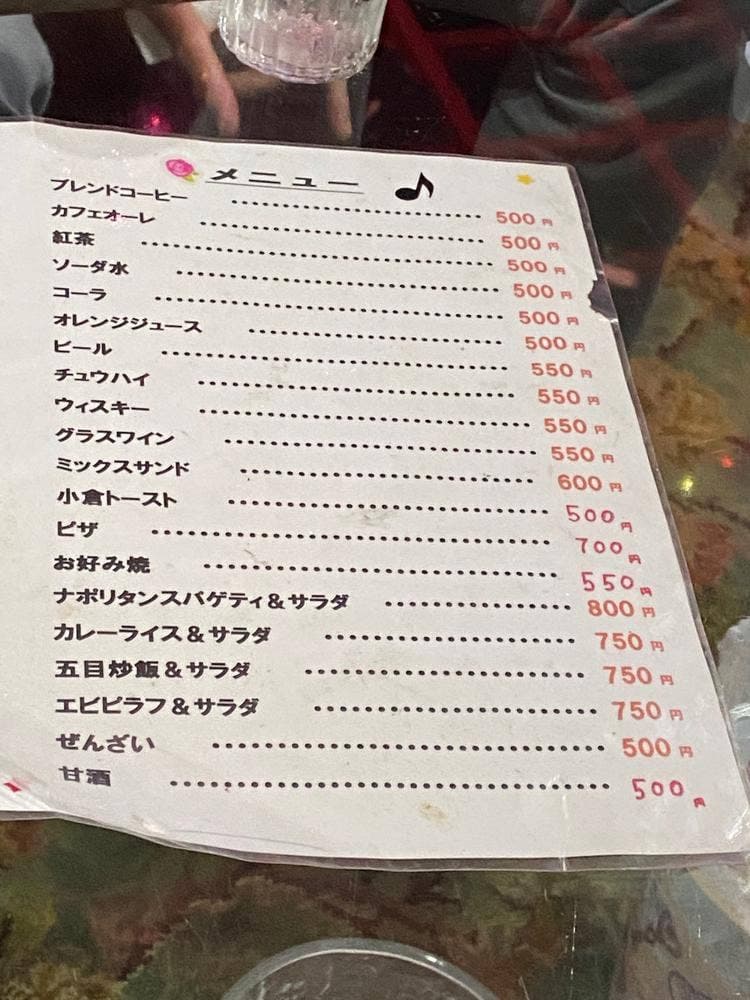 メニュー
ブレンドコーヒー ………… 500円
カフェオーレ ………… 500円
紅茶 ………… 500円
ソーダ水 ………… 500円
コーラ ………… 500円
オレンジジュース ………… 500円
ビール ………… 550円
チュウハイ ………… 550円
ウィスキー ………… 550円
グラスワイン ………… 550円
ミックスサンド ………… 600円
小倉トースト ………… 500円
ピザ ………… 700円
お好み焼 ………… 550円
ナポリタンスパゲティ&サラダ ………… 800円
カレーライス&サラダ ………… 750円
五目炒飯&サラダ ………… 750円
エビピラフ&サラダ ………… 750円
ぜんざい ………… 500円
甘酒 ………… 500円